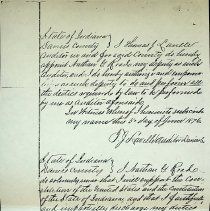 State of Indiana
County } I Thomas J.
Auditor in and for said County do hereby
appoint Nathan E. my deputy as such
Auditor, and I do hereby authorize and empower
my said deputy to do and perform all
the duties required by law to be performed
by me as Auditor aforesaid
In Witness Whereof I hereunto subscribe
my name this 3 day of June 1876
State of Indiana
County } I Nathan E.
do solemnly swear that I will support the Con-
stitution of the United States and the Constitution
of the State of Indiana and that I faithfully
and impartially discharge my duties